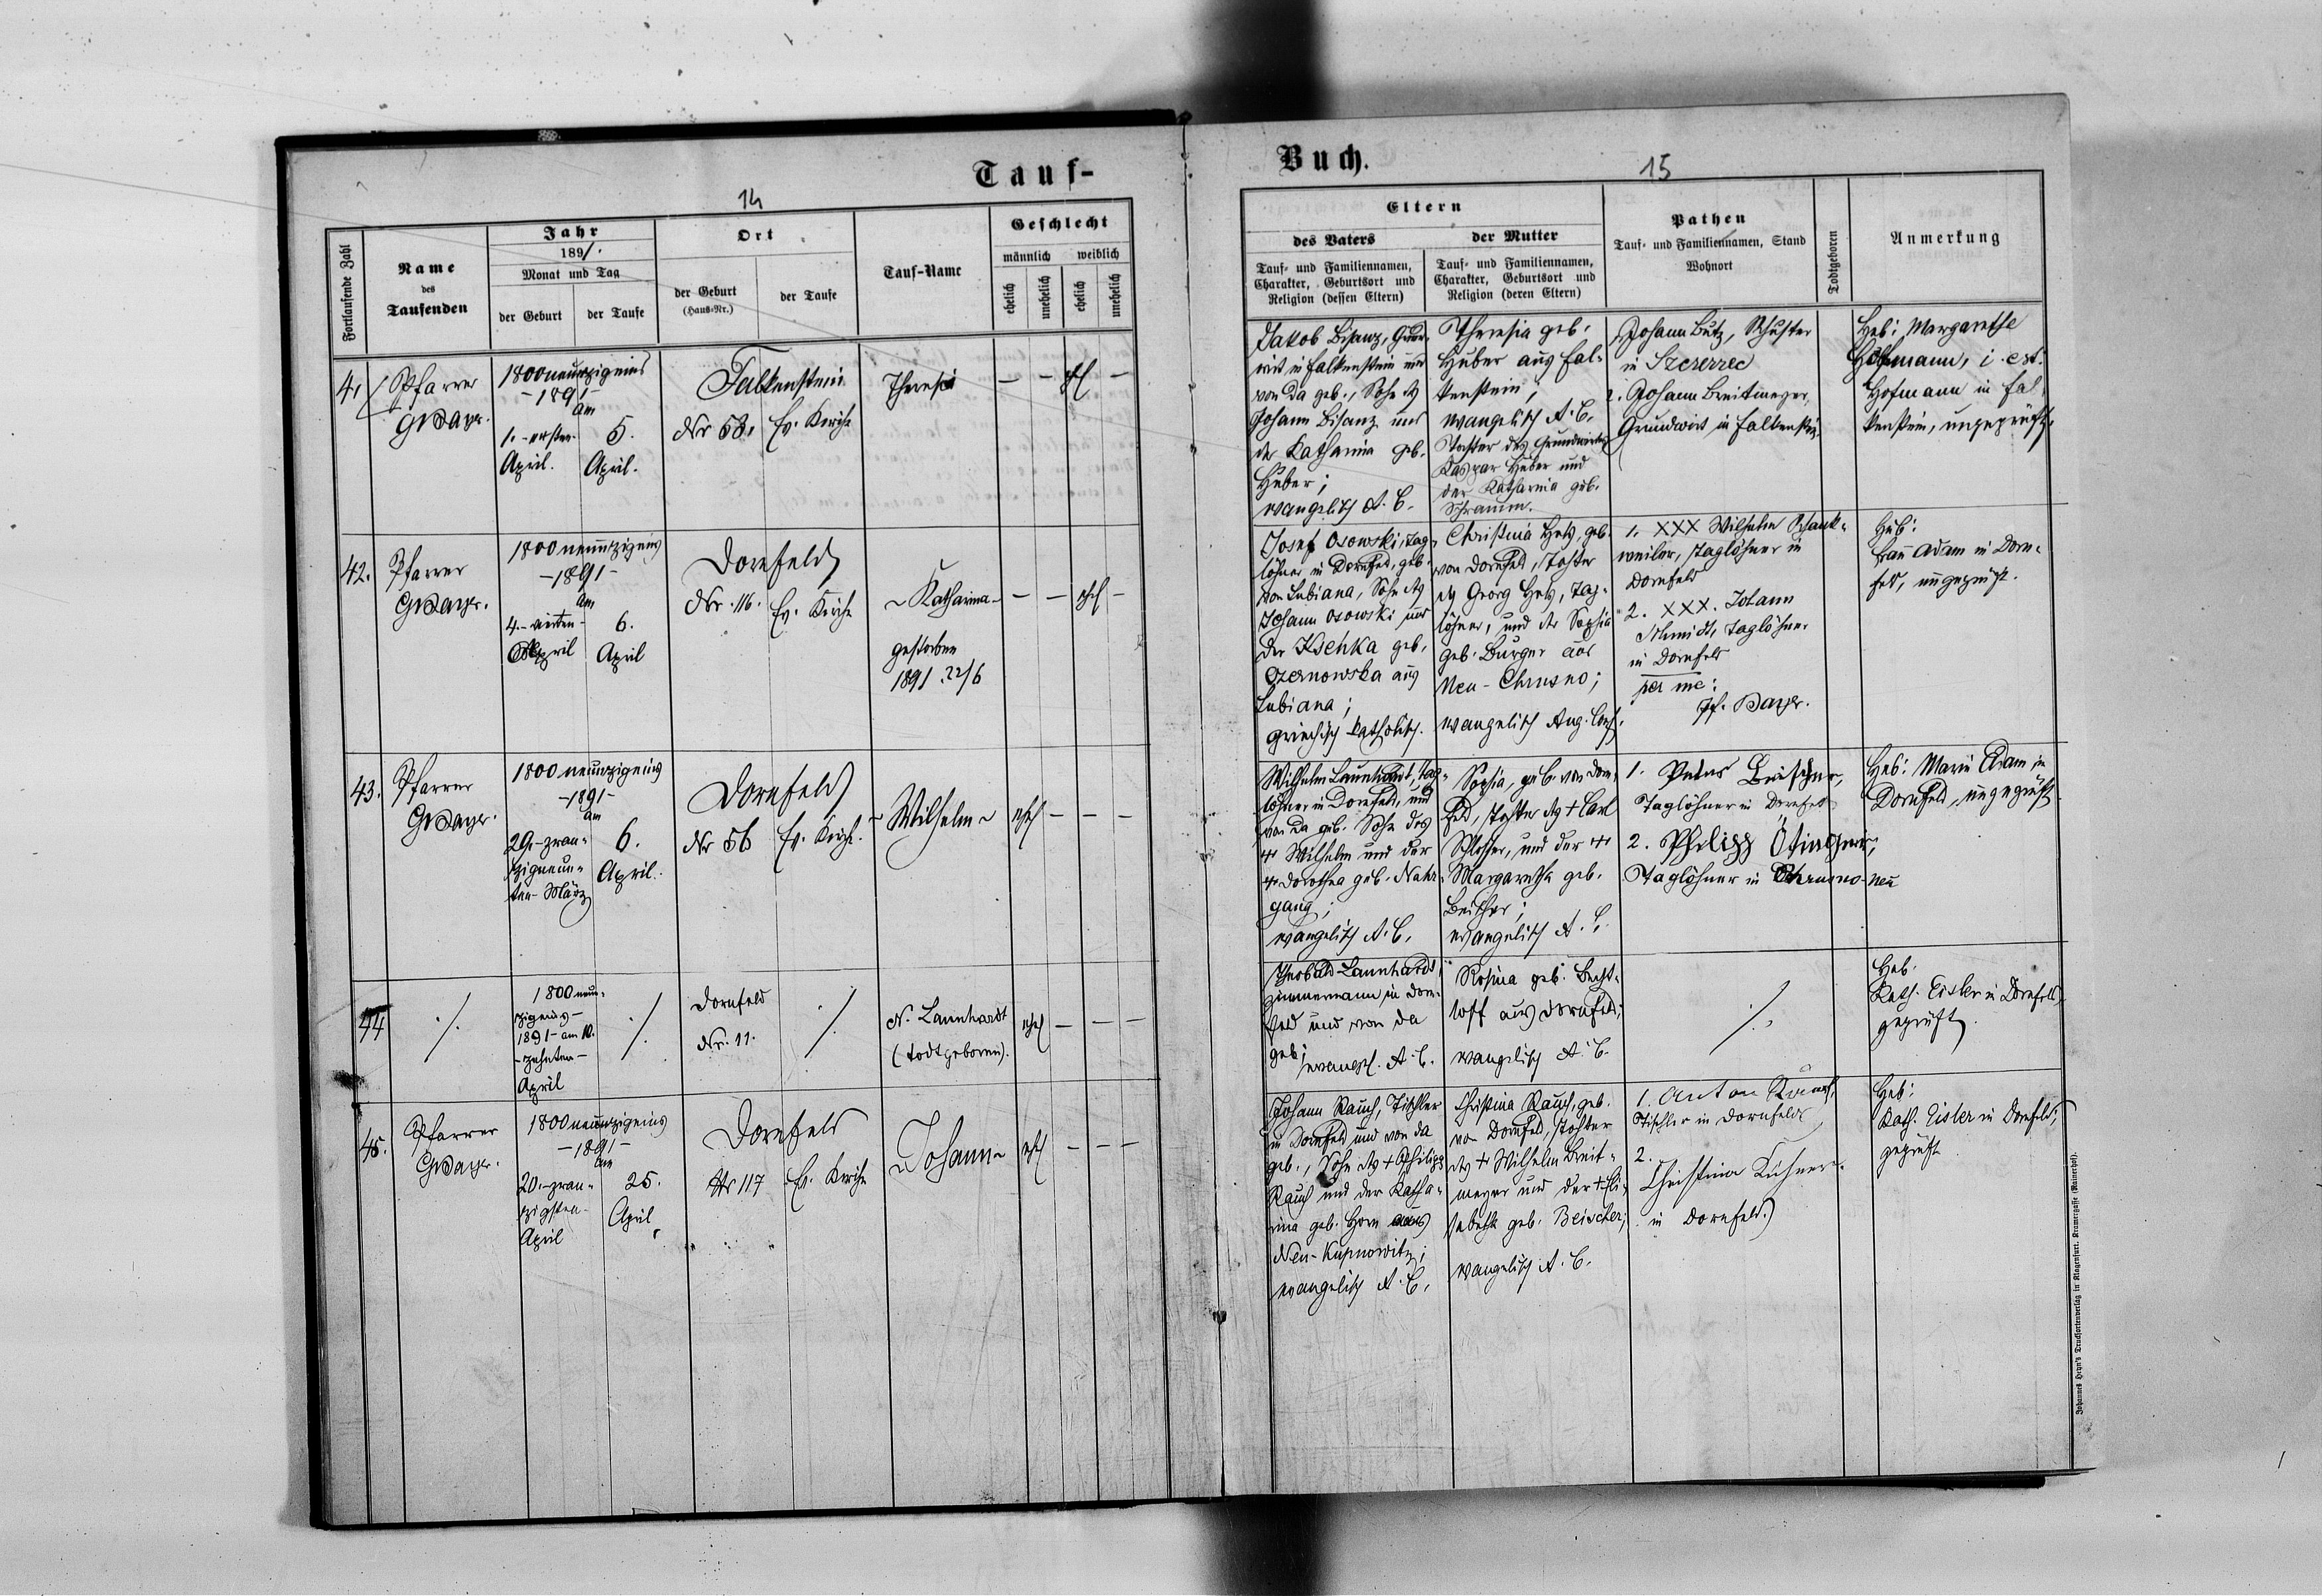 Tauf-
Buch.
14
15
Fortlaufende Zahl
Name
des
Taufenden
Jahr
1891.
Monat und Tag
der Geburt
der Taufe
Ort
der Geburt
(Haus-Nr.)
der Taufe
Tauf-Name
Geschlecht
männlich
weiblich
ehelich
unehelich
ehelich
unehelich
Eltern
des Vaters
Tauf- und Familiennamen,
Charakter, Geburtsort und
Religion (dessen Eltern)
der Mutter
Tauf- und Familiennamen,
Charakter, Geburtsort und
Religion (deren Eltern)
Pathen
Tauf- und Familiennamen, Stand
Wohnort
Todtgeboren
Anmerkung
41
Pfarrer
1800neunzigeins
-1891-
am
1.-ersten-
April.
5.
April.
Falkenstein
Nr 58.
Ev. Kirche
Theresia
— — ehel —
Jakob Bisanz, Grund-
wirt in Falkenstein und
von da geb., Sohn des
Johann Bisanz und
der Katharina geb.
Huber;
evangelisch A. C.
Theresia geb.
Huber aus Fal-
kenstein,
evangelisch A. C.
Tochter des Grundwirtes
Kaspar Huber und
der Katharina geb.
Schramm.
Johann Butz, Schuster
in Szczerzec
2. Johann Breitmeyer,
Grundwirt in Falkenstein
Heb: Margarethe
Hoffmann, i. est:
Hofmann in Fal-
kenstein, ungeprüft.
42.
Pfarrer
1800neunzigeins
-1891-
am
4.-vierten-
April
6.
April
Dornfeld
Nr. 116.
Ev. Kirche
~Katharina-
gestorben
1891 22/6
— — ehel —
Josef Osowski, Tag-
löhner in Dornfeld, geb.
von Lubiana, Sohn des
Johann Osowski und
der Ksenka geb.
Czernowska aus
Lubiana;
griechisch katholisch.
Christina Hetz, geb.
von Dornfeld, Tochter
des Georg Hetz, Tag-
löhner, und der Sophia
geb. Burger aus
Neu-Chrusno;
evangelisch Aug. Conf.
1. XXX Wilhelm Schank-
weiler, Taglöhner in
Dornfeld
2. XXX. Johann
Schmidt, Taglöhner
in Dornfeld
per me:
Heb:
Frau Adam in Dorn-
feld, ungeprüft.
43.
Pfarrer
1800neunzigeins
-1891-
am
29.-zwan-
zigneun-
ten-März
6.
April.
Dornfeld
Nr 56
Ev. Kirche.
~Wilhelm~
ehel — — —
Wilhelm Launhardt, Tag-
löhner in Dornfeld, und
von da geb. Sohn des
+ Wilhelm und der
+ Dorothea geb. Nahr-
gang;
evangelisch A. C.
Sophia, geb. von Dorn-
feld, Tochter des + Carl
Schlosser, und der +
Margaretha geb.
Beischer;
evangelisch A. C.
1. Petrus Beischer,
Taglöhner in Dornfeld
2. Philipp Ötinger,
Taglöhner in Chrusno-neu
Heb: Marie Adam in
Dornfeld, ungeprüft.
44
./.
1800neun-
zigeins-
1891- am 10.
-zehnten-
April
./.
Dornfeld
Nr. 11.
./.
N. Launhardt
(todtgeboren).
ehel — — —
Theobald Launhardt,
Zimmermann in Dorn-
feld und von da
geb; evangel. A. C.
Rosina geb. Becht-
loff aus Dornfeld;
evangelisch A. C.
./.
Heb.
Kath. Eisler in Dornfeld,
geprüft.
45.
Pfarrer
1800neunzigeins
-1891-
am
20.-zwan-
zigsten-
April
25.
April
Dornfeld
Nr 117
Ev. Kirche
~Johann~
ehel — — —
Johann Rauch, Tischler
in Dornfeld und von da
geb., Sohn des + Philipp
Rauch und der Katha-
rina geb. Horn aus
Neu-Kupnowitz;
evangelisch A. C.
Christina Rauch, geb.
von Dornfeld, Tochter
des + Wilhelm Breit-
meyer und der + Eli-
sabeth geb. Beischer;
evangelisch A. C.
1. Anton Rauch,
Tischler in Dornfeld
2.
Christina Kühner
in Dornfeld.
Heb:
Kath. Eisler in Dornfeld;
geprüft
Johannes Heyn's Drucksortenverlag in Klagenfurt, Kramergasse (Rainerhof).